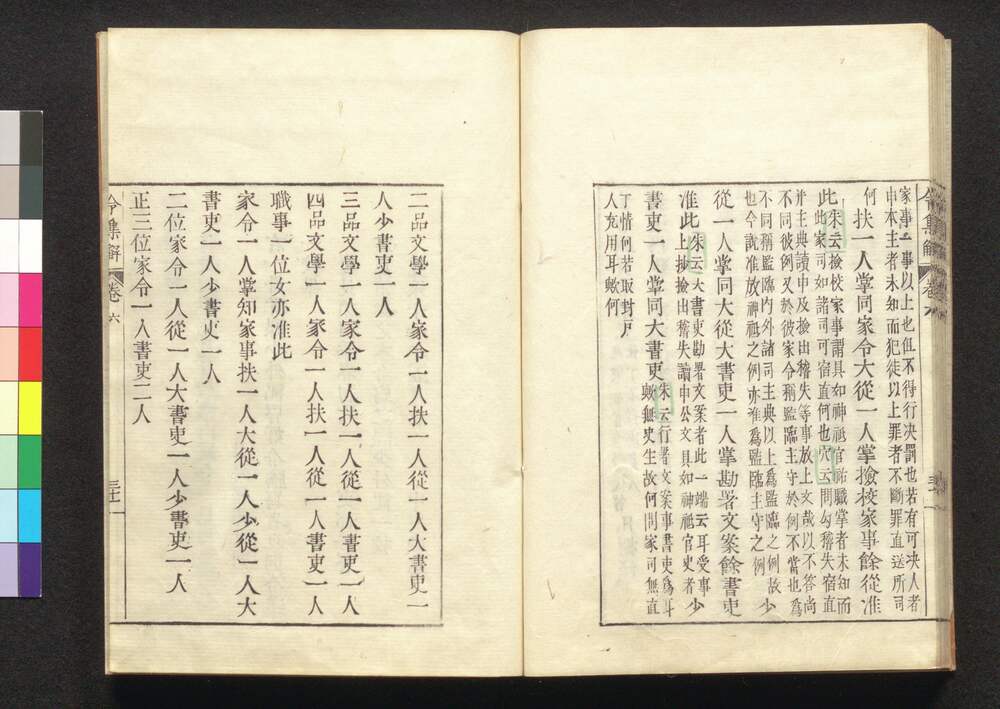 令集解 卷六
家事二事以上也但不得行决罰也若有可决人者
申本主者未知而犯徒以上罪者不斷罪直送所司
何扶一人掌同家令大從一人掌撿挍家事餘從准
此朱云撿挍家事謂具如神祇官祐職掌者未知而
此家司如諸司可宿直何也穴云問勾稽失宿直
并主典讀申及撿出稽失等事放上文哉以不答尚
不同彼例又於彼家令稱監臨主守於何不當也為
不同稱監臨内外諸司主典以上為監臨之例故少
也今說准放神祇之例亦准為監臨主守之例
從一人掌同大從大書吏一人掌勘署文案餘書吏
准此朱云大書吏勘署文案者此一端云耳受事
上抄撿出稽失讀申公文具如神祇官史者少
書吏一人掌同大書吏朱云行署文案事書吏為耳
歟無史生故何問家司無直
丁情何若取封戸
人充用耳歟何
二品文學一人家令一人扶一人從一人大書吏一
人少書吏一人
三品文學一人家令一人扶一人從一人書吏一人
四品文學一人家令一人扶一人從一人書吏一人
職事一位女亦准此
家令一人掌知家事扶一人大從一人少從一人大
書吏一人少書吏一人
二位家令一人從一人大書吏一人少書吏一人
正三位家令一人書吏二人
令集解 卷六